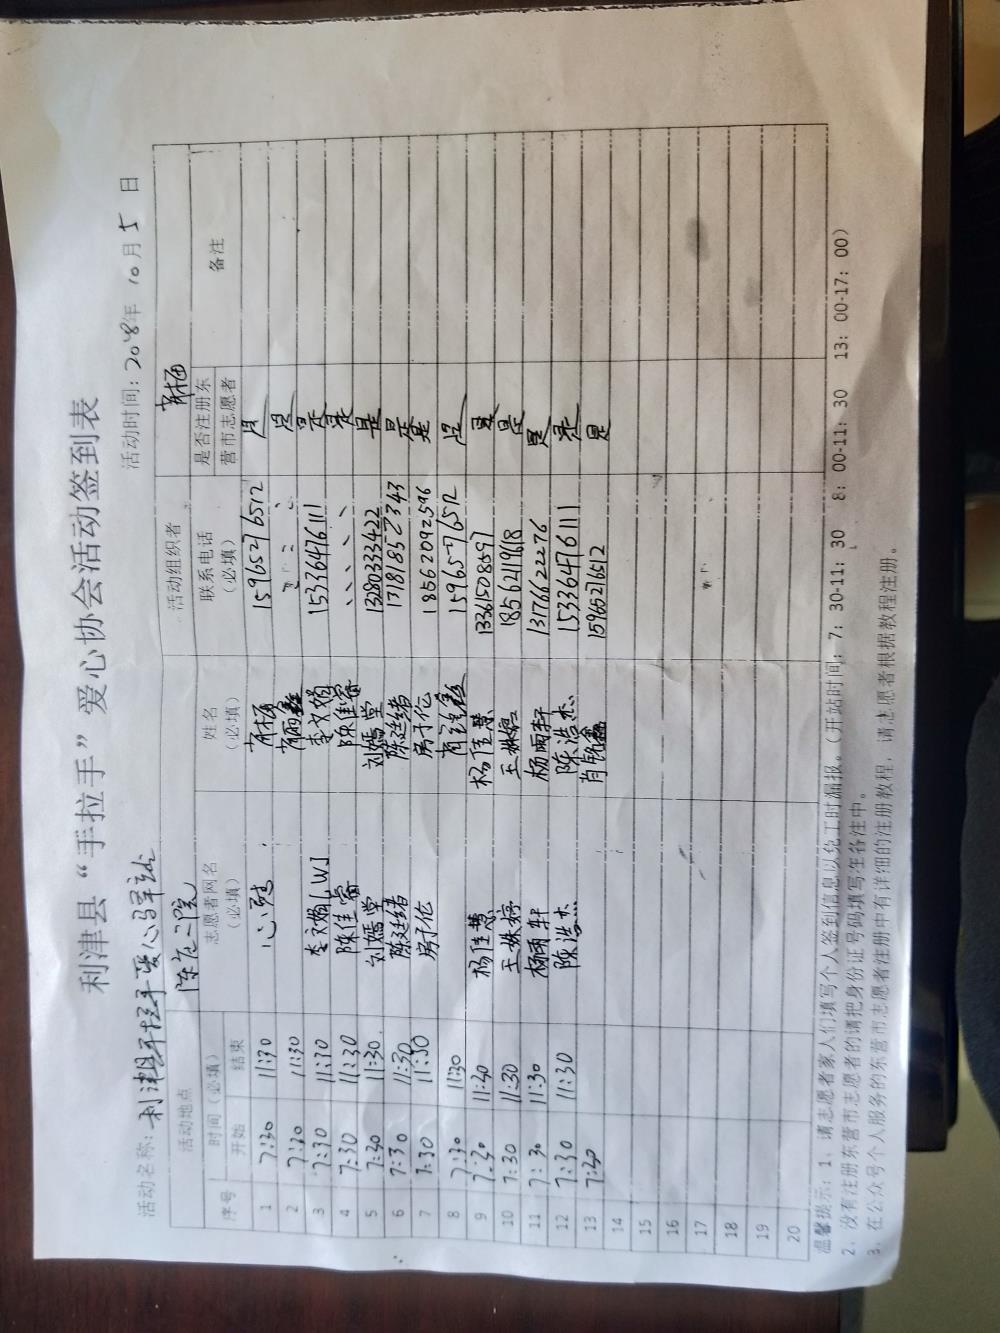 利津县“手拉手”爱心协会活动签到表
活动名称：利津县手拉手爱心驿站 活动时间：2018年10月5日
活动地点 陈庄二院 活动组织者 肖杨
序号 时间（必填） 志愿者网名（必填） 姓名（必填） 联系电话（必填） 是否注册东营市志愿者 备注
开始 结束
1 7:30 11:30 心慧 肖杨 15965276512 是
2 7:30 11:30 是
3 7:30 11:30 李文娟LWJ 李文娟 15336476111 是
4 7:30 11:30 陈佳睿 陈佳睿 、、、、、 是
5 7:30 11:30 刘嫣堂 刘嫣堂 13280333422 是
6 7:30 11:30 陈廷绪 陈廷绪 17181852343 是
7 7:30 11:30 房子伦 房子伦 18562092596 是
8 7:30 11:30 15965276512 是
9 7:30 11:30 杨佳慧 杨佳慧 13361508597 是
10 7:30 11:30 王姝婷 王姝婷 18562119618 是
11 7:30 11:30 杨雨轩 杨雨轩 13176622276 是
12 7:30 11:30 陈浩杰 陈浩杰 15336476111 是
13 7:30 肖铭鑫 15965276512 是
14
15
16
17
18
19
20
温馨提示：1、请志愿者家人们填写个人签到信息以免工时漏报。（开站时间：7：30-11：30 8：00-11：30 13：00-17：00）
2、没有注册东营市志愿者的请把身份证号码填写至备注中。
3、在公众号个人服务的东营市志愿者注册中有详细的注册教程，请志愿者根据教程注册。